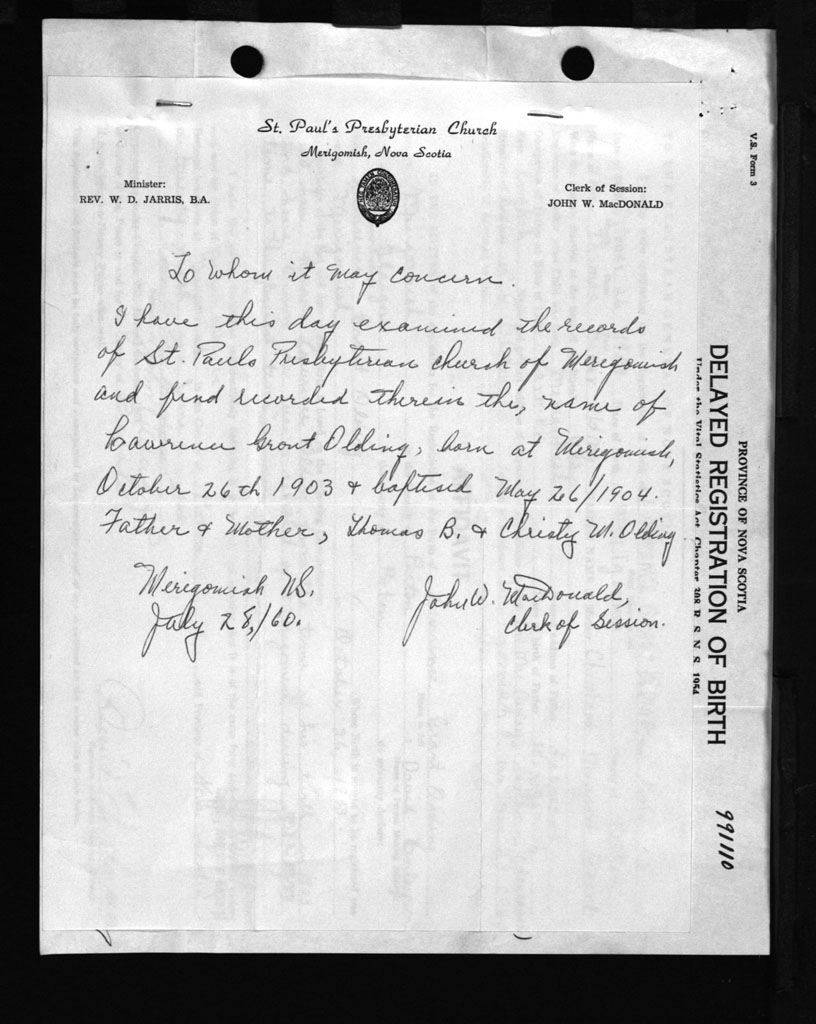 St. Paul's Presbyterian Church
Merigomish, Nova Scotia
Minister:
REV. W. D. JARRIS, B.A.
Clerk of Session:
JOHN W. MacDONALD
To Whom it May Concern.
I have this day examined the records
of St. Pauls Presbyterian church of Merigomish
and find recorded therein the, name of
Lawrence Grant Olding, born at Merigomish,
October 26th 1903 & baptised May 26/1904.
Father & Mother, Thomas B. & Christy M. Olding
Merigomish NS.
July 28,/60.
John W. MacDonald,
Clerk of Session.
V.S. Form 3
PROVINCE OF NOVA SCOTIA
DELAYED REGISTRATION OF BIRTH
Under the Vital Statistics Act, Chapter 308 R. S. N. S. 1954
991110